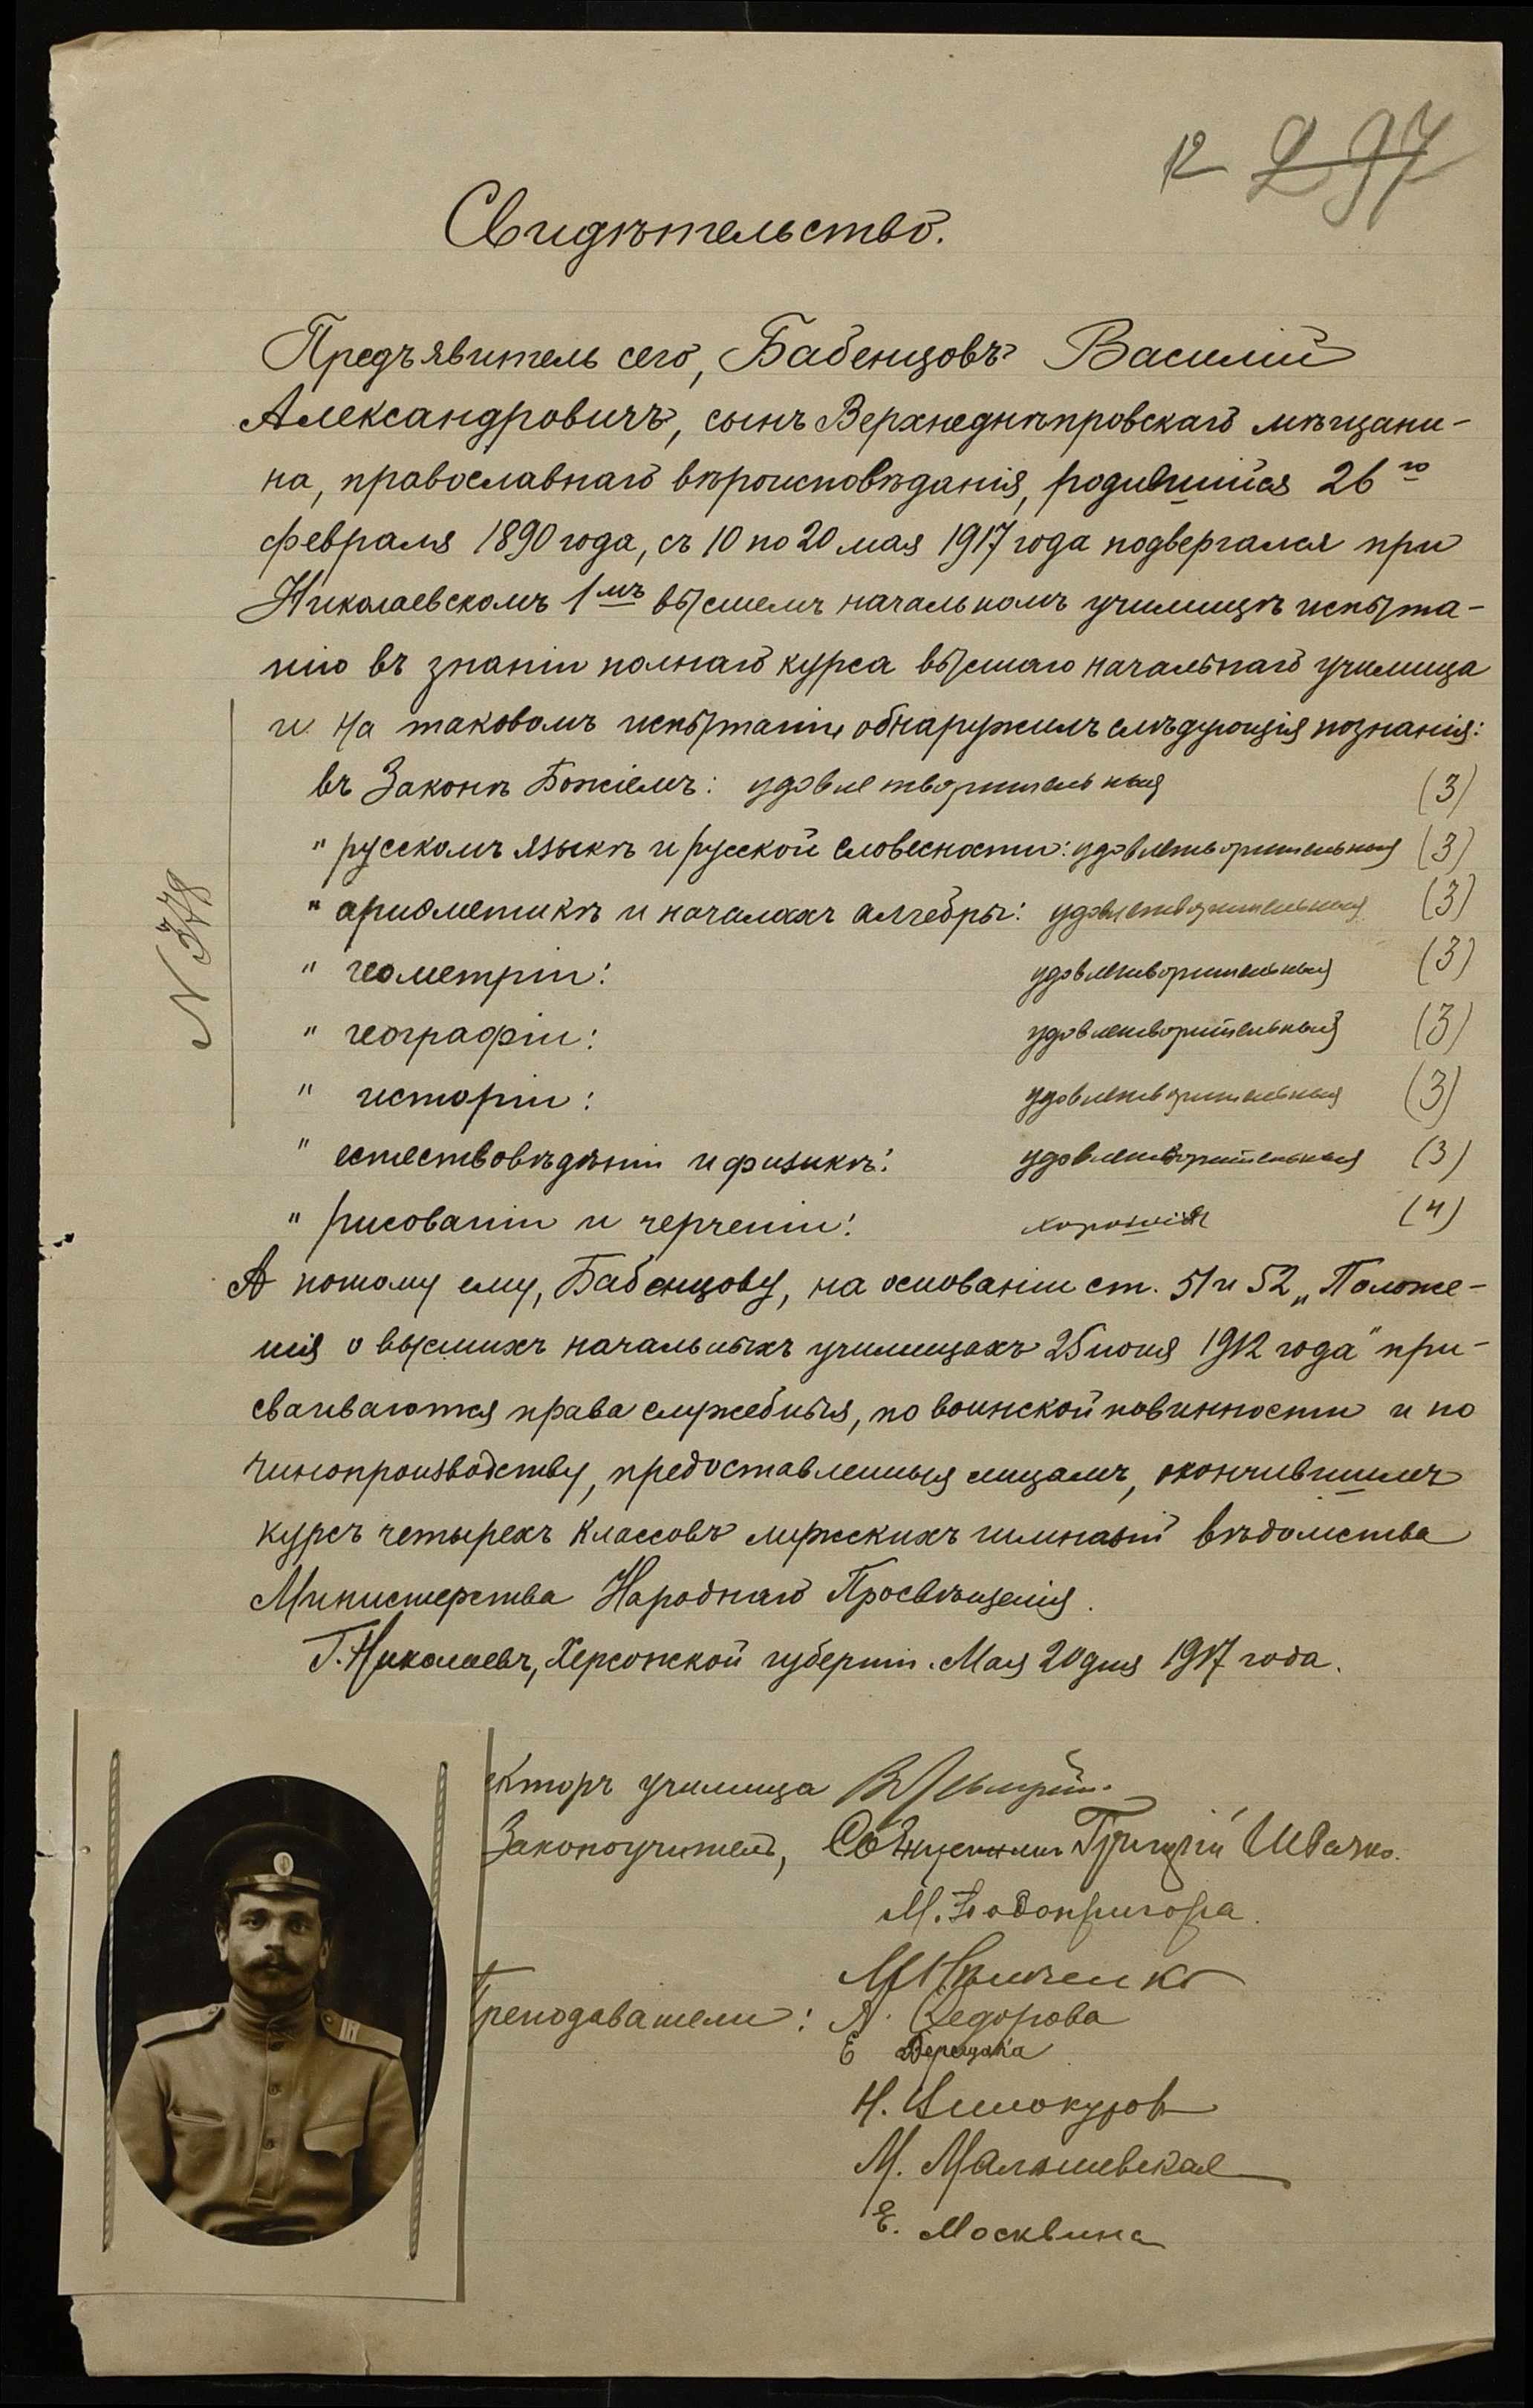 12 297
Свидѣтельство.
Предъявитель сего, Бабенцовъ Василій
Александровичъ, сынъ Верхнеднѣпровскаго мѣщани-
на, православнаго вѣроисповѣданія, родившійся 26го
февраля 1890 года, съ 10 по 20 мая 1917 года подвергался при
Николаевскомъ 1мъ высшемъ начальномъ училищѣ испыта-
нію въ знаніи полнаго курса высшаго начальнаго училища
и на таковомъ испытаніи обнаружилъ слѣдующія познанія:
въ Законѣ Божіемъ: удовлетворительныя (3)
" русскомъ языкѣ и русской словесности: удовлетворительныя (3)
" ариѳметикѣ и началахъ алгебры: удовлетворительныя (3)
" геометріи: удовлетворительныя (3)
" географіи: удовлетворительныя (3)
" исторіи: удовлетворительныя (3)
" естествовѣдѣніи и физикѣ: удовлетворительныя (3)
" рисованіи и черченіи: хорошія (4)
N 378
А потому ему, Бабенцову, на основаніи ст. 51 и 52 „Положе-
нія о высшихъ начальныхъ училищахъ 25 іюня 1912 года" при-
сваиваются права служебныя, по воинской повинности и по
чинопроизводству, предоставленныя лицамъ, окончившимъ
курсъ четырехъ классовъ мужскихъ гимназій вѣдомства
Министерства Народнаго Просвѣщенія.
Г. Николаевъ, Херсонской губерніи. Мая 20 дня 1917 года.
екторъ училища
Законоучитель, Священникъ Григорій Швачко.
М. Водопригора.
Преподаватели: А. Федорова
Е
Н. Винокуров
М. Малышевская
Е. Москвина